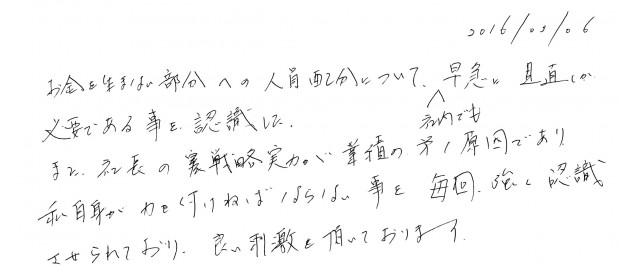 2016/05/06
お金を生まない部分への人員配分について、早急に見直しが
社内でも
必要である事を認識した。
また、社長の裏戦略実力が業績の第1原因であり
私自身が力を付けねばならない事を毎回、強く認識
させられており、良い刺激を頂いております。